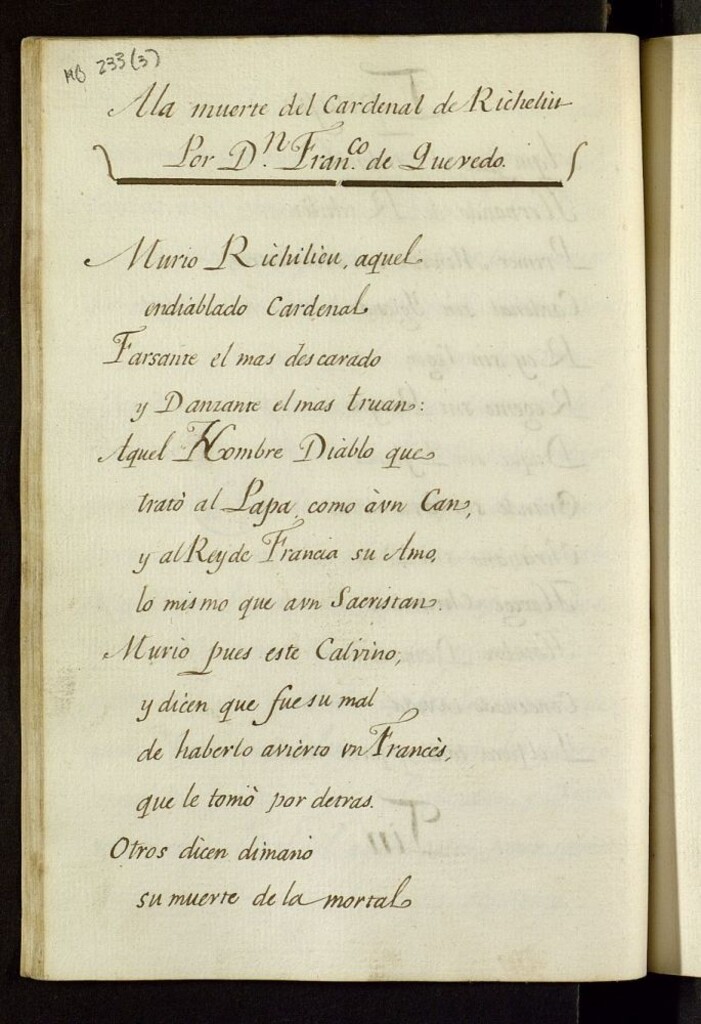 MB 233(3)
Ala muerte del Cardenal de Richeliu
Por D.n Fran.co de Quevedo.
Murio Richilieu, aquel
endiablado Cardenal
Farsante el mas descarado
y Danzante el mas truan:
Aquel Hombre Diablo que
tratò al Papa, como àvn Can,
y al Rey de Francia su Amo,
lo mismo que avn Sacristan.
Murio pues este Calvino,
y dicen que fue su mal
de haberlo avierto vn Francès,
que le tomò por detras.
Otros dicen dimanò
su muerte de la mortal